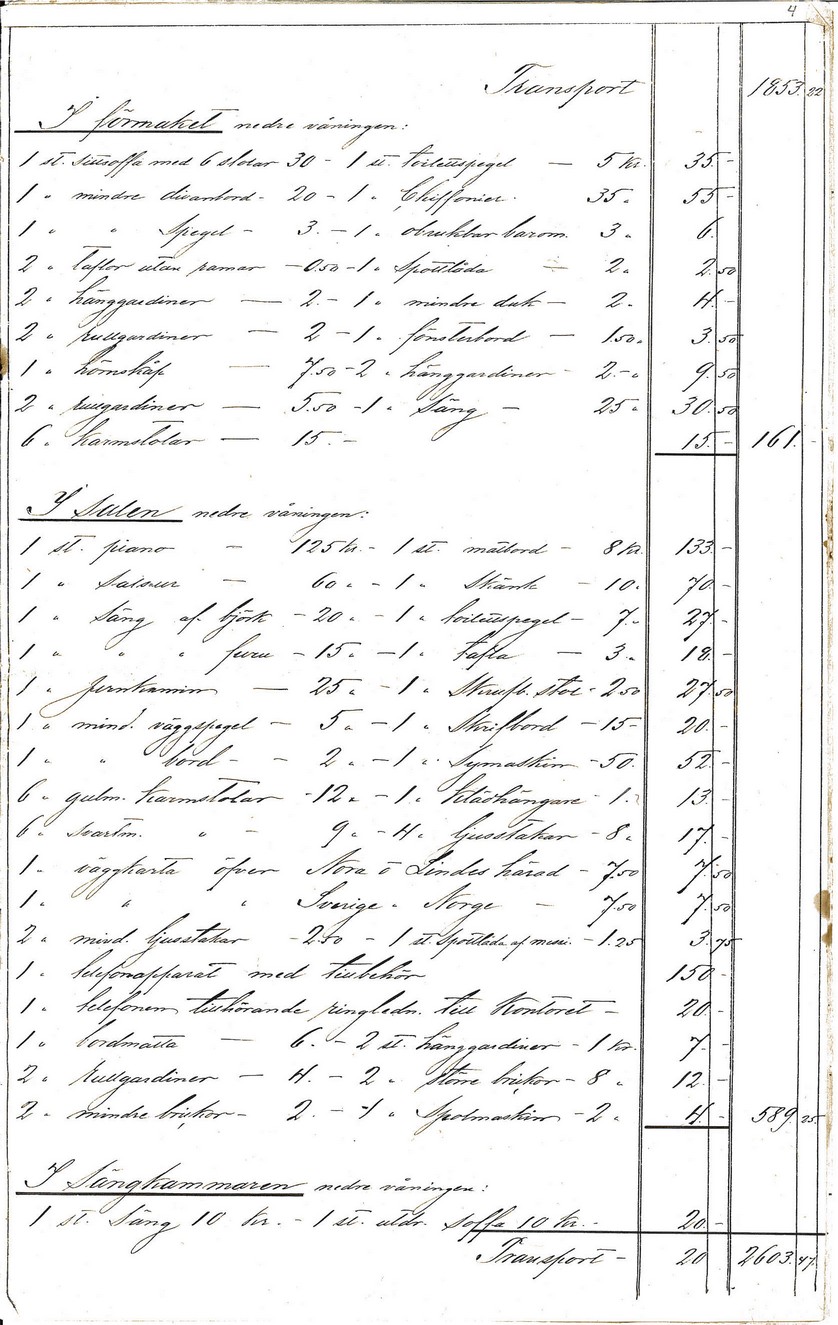 4
Transport 1853.22
I förmaket nedre våningen:
1 st. sittsoffa med 6 stolar 30 - 1 st. toilettspegel — 5 Kr. 35.-
1 " mindre divanbord - 20 - 1 " Chiffonier 35 " 55-
1 " " Spegel - 3. - 1 " obrukbar barom. 3 " 6.
2 " taflor utan ramar - 0.50 - 1 " Spottlåda — 2 " 2.50
2 " hänggardiner — 2. - 1 " mindre duk - 2. 4.-
2 " rullgardiner — 2 - 1 " fönsterbord — 1.50 " 3.50
1 " hörnskåp — 7.50 - 2 " hänggardiner - 2.- " 9.50
2 " rullgardiner — 5.50 - 1 " Säng - 25 " 30.50
6 " Karmstolar — 15.- 15.- 161.-
I Salen nedre våningen:
1 st. piano — 125 kr. - 1 st. matbord - 8 Kr. 133.-
1 " — 60 " - 1 " Skänk - 10. 70.-
1 " Säng af björk - 20 " - 1 " toilettspegel - 7. 27-
1 " " " furu - 15 " - 1 " tafla — 3 " 18.-
1 " Jernkamin — 25 " - 1 " Skrufb. stol - 2.50 27.50
1 " mind. väggspegel - 5 " - 1 " Skrifbord - 15- 20.-
1 " " bord - - 2 " - 1 " Symaskin - 50. 52.-
6 " gulm. Karmstolar - 12 " - 1 " Klädhängare - 1. 13.-
6 " svartm. " - 9 " - 4 " ljusstakar - 8 " 17.-
1 " väggkarta öfver Nora o Lindes härad - 7.50 7.50
1 " " " Sverige " Norge — 7.50 7.50
2 " mind. ljusstakar - 2.50 - 1 st. Spottlåda af messi. - 1.25 3.75
1 " telefonapparat med tillbehör 150-
1 " telefonen tillhörande ringledn. till Kontoret - 20.-
1 " bordmatta — 6. - 2 st. hänggardiner - 1 Kr. 7.-
2 " Rullgardiner — 4. - 2 " större brickor - 8 " 12.-
2 " mindre brickor - 2. - 1 " Spolmaskin - 2 " 4.- 589.25
I Sängkammaren nedre våningen:
1 st. Säng 10 Kr. - 1 st. utdr. soffa 10 Kr. - 20.-
Transport - 20 2603.47